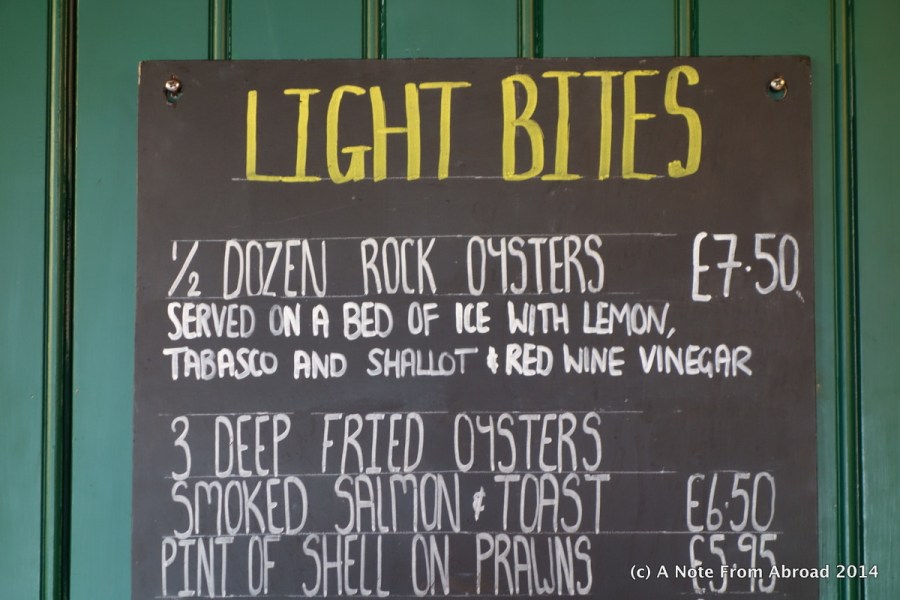 LIGHT BITES
½ DOZEN ROCK OYSTERS £7.50
SERVED ON A BED OF ICE WITH LEMON,
TABASCO AND SHALLOT & RED WINE VINEGAR
3 DEEP FRIED OYSTERS
SMOKED SALMON & TOAST £6.50
PINT OF SHELL ON PRAWNS £5.95
(c) A Note From Abroad 2014